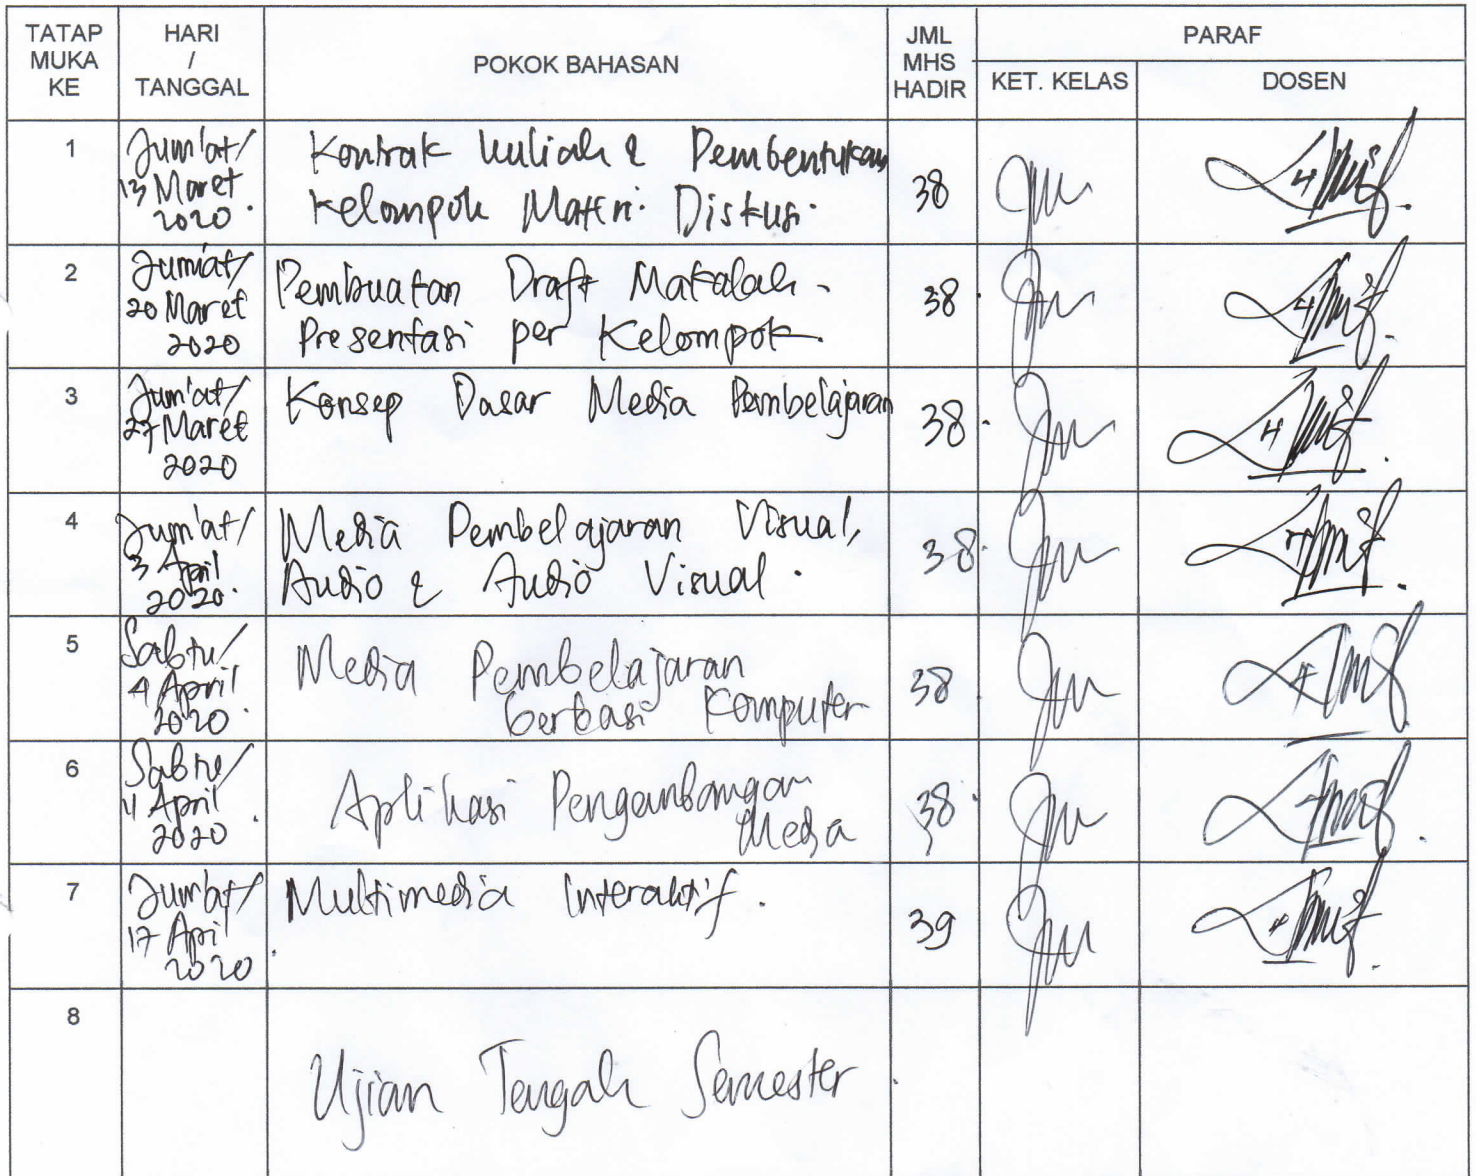 TATAP MUKA KE
HARI / TANGGAL
POKOK BAHASAN
JML MHS HADIR
PARAF
KET. KELAS
DOSEN
1
Jum'at/
13 Maret
2020.
Kontrak kuliah & Pembentukan
Kelompok Materi Diskusi.
38
2
Jum'at/
20 Maret
2020
Pembuatan Draft Makalah -
Presentasi per Kelompok.
38.
3
Jum'at/
27 Maret
2020
Konsep Dasar Media Pembelajaran
38.
4
Jum'at/
3 April
2020.
Media Pembelajaran Visual,
Audio & Audio Visual.
38.
5
Sabtu/
4 April
2020.
Media Pembelajaran
berbasi Komputer
38.
6
Sabtu/
11 April
2020.
Aplikasi Pengembangan
Media
38.
7
Jum'at/
17 Apil
2020.
Multimedia Interaktif.
39
8
Ujian Tengah Semester